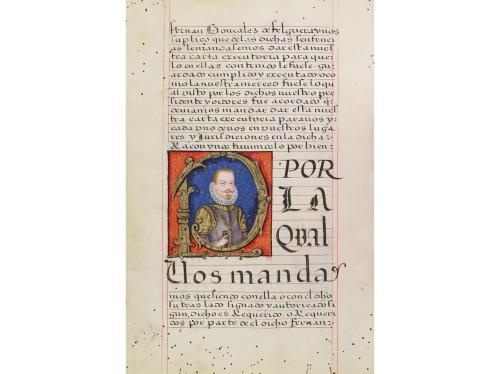 fernan Gonçales de felguera y nos
suplico que de las dichas sentencı
as le mandasemos dar esta nues
tra carta executoria para que
lo en ellas contenido le fuese gu
ardado cumplido y executado o co
mo la nuestra merced fuese lo qu
al visto por los dichos nuestro pre
sidente y oidores fue acordado q
deviamos mandar dar esta nues
tra carta executoria para vos y
cada vno de vos en vuestros luga
res y Jurisdiciones en la dicha
Raçon y nos tuvimos lo por bien
POR
LA
Qual
Vos manda
mos que siendo con ella o con el dho
su traslado signado y autoricado si
gun dicho es Requerido o Requeri
dos por parte de el dicho fernan